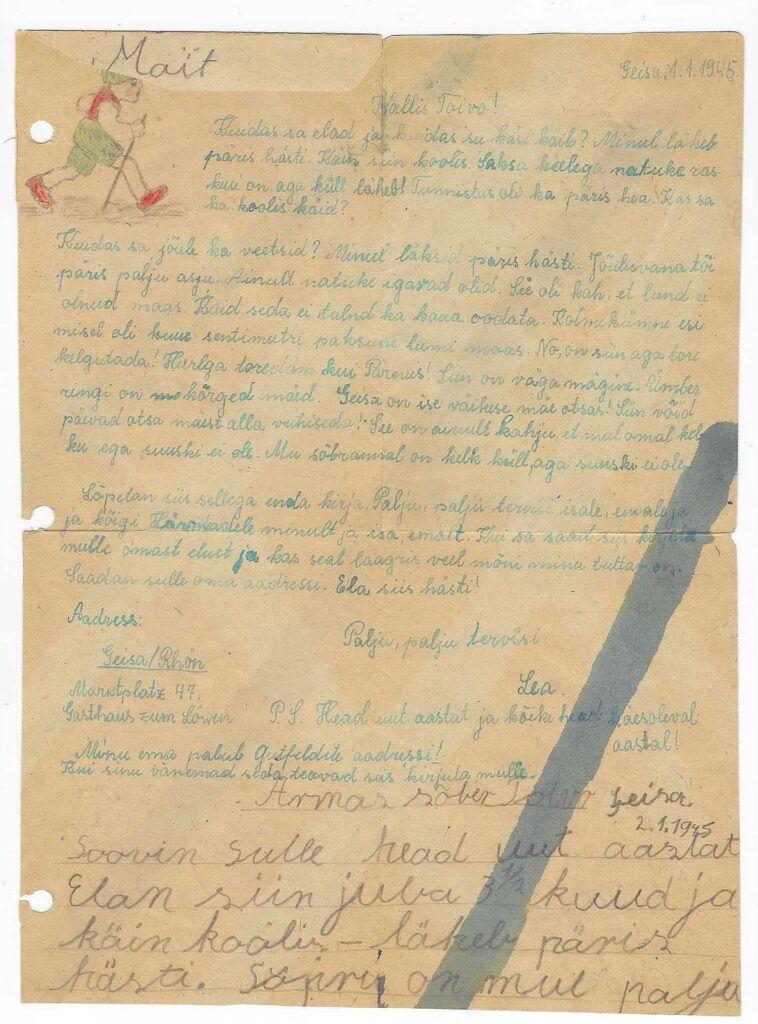 Mait
Geisa, 1.1.1945.
Kallis Toivo!
Kuidas sa elad ja kuidas su käsi käib? Minul läheb
päris hästi. Käin siin koolis. Saksa keelega natuke ras-
kusi on, aga küll läheb! Tunnistus oli ka päris hea. Kas sa
ka koolis käid?
Kuidas sa jõule ka veetsid? Minul läksid päris hästi. Jõuluvana tõi
päris palju asju. Ainult natuke igavad olid. See oli kah, et lund ei
olnud maas. Kuid seda ei tulnd ka kaua oodata. Kolmekümne esi
misel oli kuue sentimetri paksune lumi maas. No, on siin aga tore
kelgutada! Hurlga toredam kui Pärnus! Siin on väga mägine. Ümber
ringi on kõrged mäed. Geisa on ise väikese mäe otsas! Siin võid
päevad otsa mäest alla veihiseda! See on ainult kahju, et meil omal kel
ku ega suuski ei ole. Mu sõbrannal on kelk küll, aga suuski ei ole.
Lõpetan siis sellega enda kirja. Palju, palju tervisi isale, emale ja
ja kõigi Härmadele minult ja isa, emalt. Kui sa saad siis kirjuta
mulle omast elust ja kas seal laagris veel mõni minu tuttav on.
Saadan sulle oma aadressi. Ela siis hästi!
Aadress:
Palju, palju tervisi
Geisa/Rhön
Lea.
Marktplatz 47.
Gasthaus zum Löwen
P.S. Head uut aastat ja kõike head käesoleval
aastal!
Minu ema palub Gutfeldite aadressi!
Kui sinu vanemad seda teavad siis kirjuta mulle.
Armas sõber Geisa.
2.1.1945
Soovin sulle head uut aastat
Elan siin juba 3 1/2 kuud ja
käin koolis – läheb päris
hästi. Sõpru on mul palju